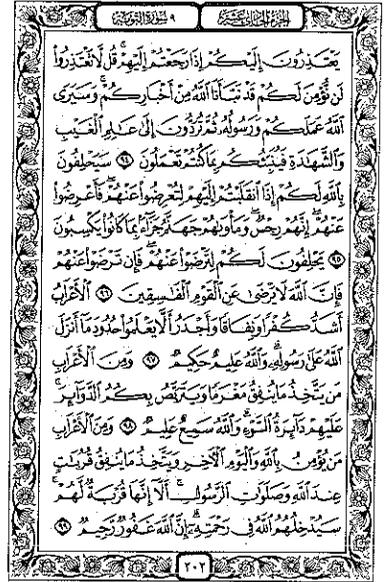 الجزء الحادي عشر
٩ سورة التوبة
يَعْتَذِرُونَ إِلَيْكُمْ إِذَا رَجَعْتُمْ إِلَيْهِمْ ۚ قُل لَّا تَعْتَذِرُوا
لَن نُّؤْمِنَ لَكُمْ قَدْ نَبَّأَنَا اللَّهُ مِنْ أَخْبَارِكُمْ ۚ وَسَيَرَى
اللَّهُ عَمَلَكُمْ وَرَسُولُهُ ثُمَّ تُرَدُّونَ إِلَىٰ عَالِمِ الْغَيْبِ
وَالشَّهَادَةِ فَيُنَبِّئُكُم بِمَا كُنتُمْ تَعْمَلُونَ ٩٤ سَيَحْلِفُونَ
بِاللَّهِ لَكُمْ إِذَا انقَلَبْتُمْ إِلَيْهِمْ لِتُعْرِضُوا عَنْهُمْ ۖ فَأَعْرِضُوا
عَنْهُمْ ۖ إِنَّهُمْ رِجْسٌ ۖ وَمَأْوَاهُمْ جَهَنَّمُ جَزَاءً بِمَا كَانُوا يَكْسِبُونَ
٩٥ يَحْلِفُونَ لَكُمْ لِتَرْضَوْا عَنْهُمْ ۖ فَإِن تَرْضَوْا عَنْهُمْ
فَإِنَّ اللَّهَ لَا يَرْضَىٰ عَنِ الْقَوْمِ الْفَاسِقِينَ ٩٦ الْأَعْرَابُ
أَشَدُّ كُفْرًا وَنِفَاقًا وَأَجْدَرُ أَلَّا يَعْلَمُوا حُدُودَ مَا أَنزَلَ
اللَّهُ عَلَىٰ رَسُولِهِ ۗ وَاللَّهُ عَلِيمٌ حَكِيمٌ ٩٧ وَمِنَ الْأَعْرَابِ
مَن يَتَّخِذُ مَا يُنفِقُ مَغْرَمًا وَيَتَرَبَّصُ بِكُمُ الدَّوَائِرَ ۚ
عَلَيْهِمْ دَائِرَةُ السَّوْءِ ۗ وَاللَّهُ سَمِيعٌ عَلِيمٌ ٩٨ وَمِنَ الْأَعْرَابِ
مَن يُؤْمِنُ بِاللَّهِ وَالْيَوْمِ الْآخِرِ وَيَتَّخِذُ مَا يُنفِقُ قُرُبَاتٍ
عِندَ اللَّهِ وَصَلَوَاتِ الرَّسُولِ ۚ أَلَا إِنَّهَا قُرْبَةٌ لَّهُمْ ۚ
سَيُدْخِلُهُمُ اللَّهُ فِي رَحْمَتِهِ ۗ إِنَّ اللَّهَ غَفُورٌ رَّحِيمٌ ٩٩
٢٠٢